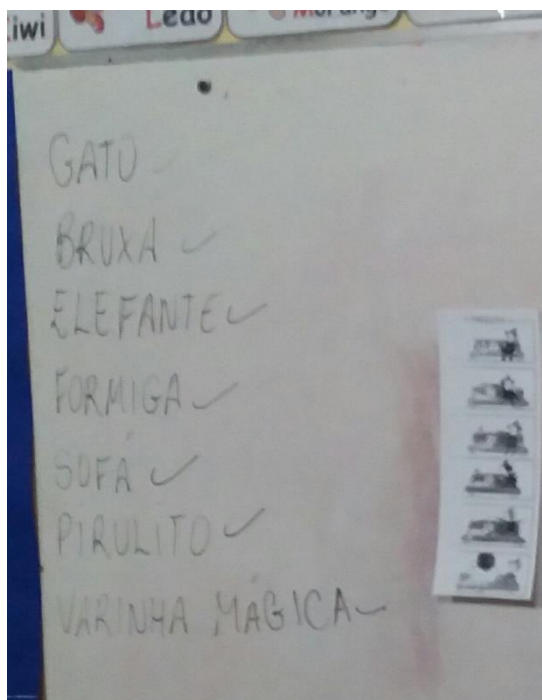 iwi Leão Morango
GATO
BRUXA
ELEFANTE
FORMIGA
SOFÁ
PIRULITO
VARINHA MÁGICA